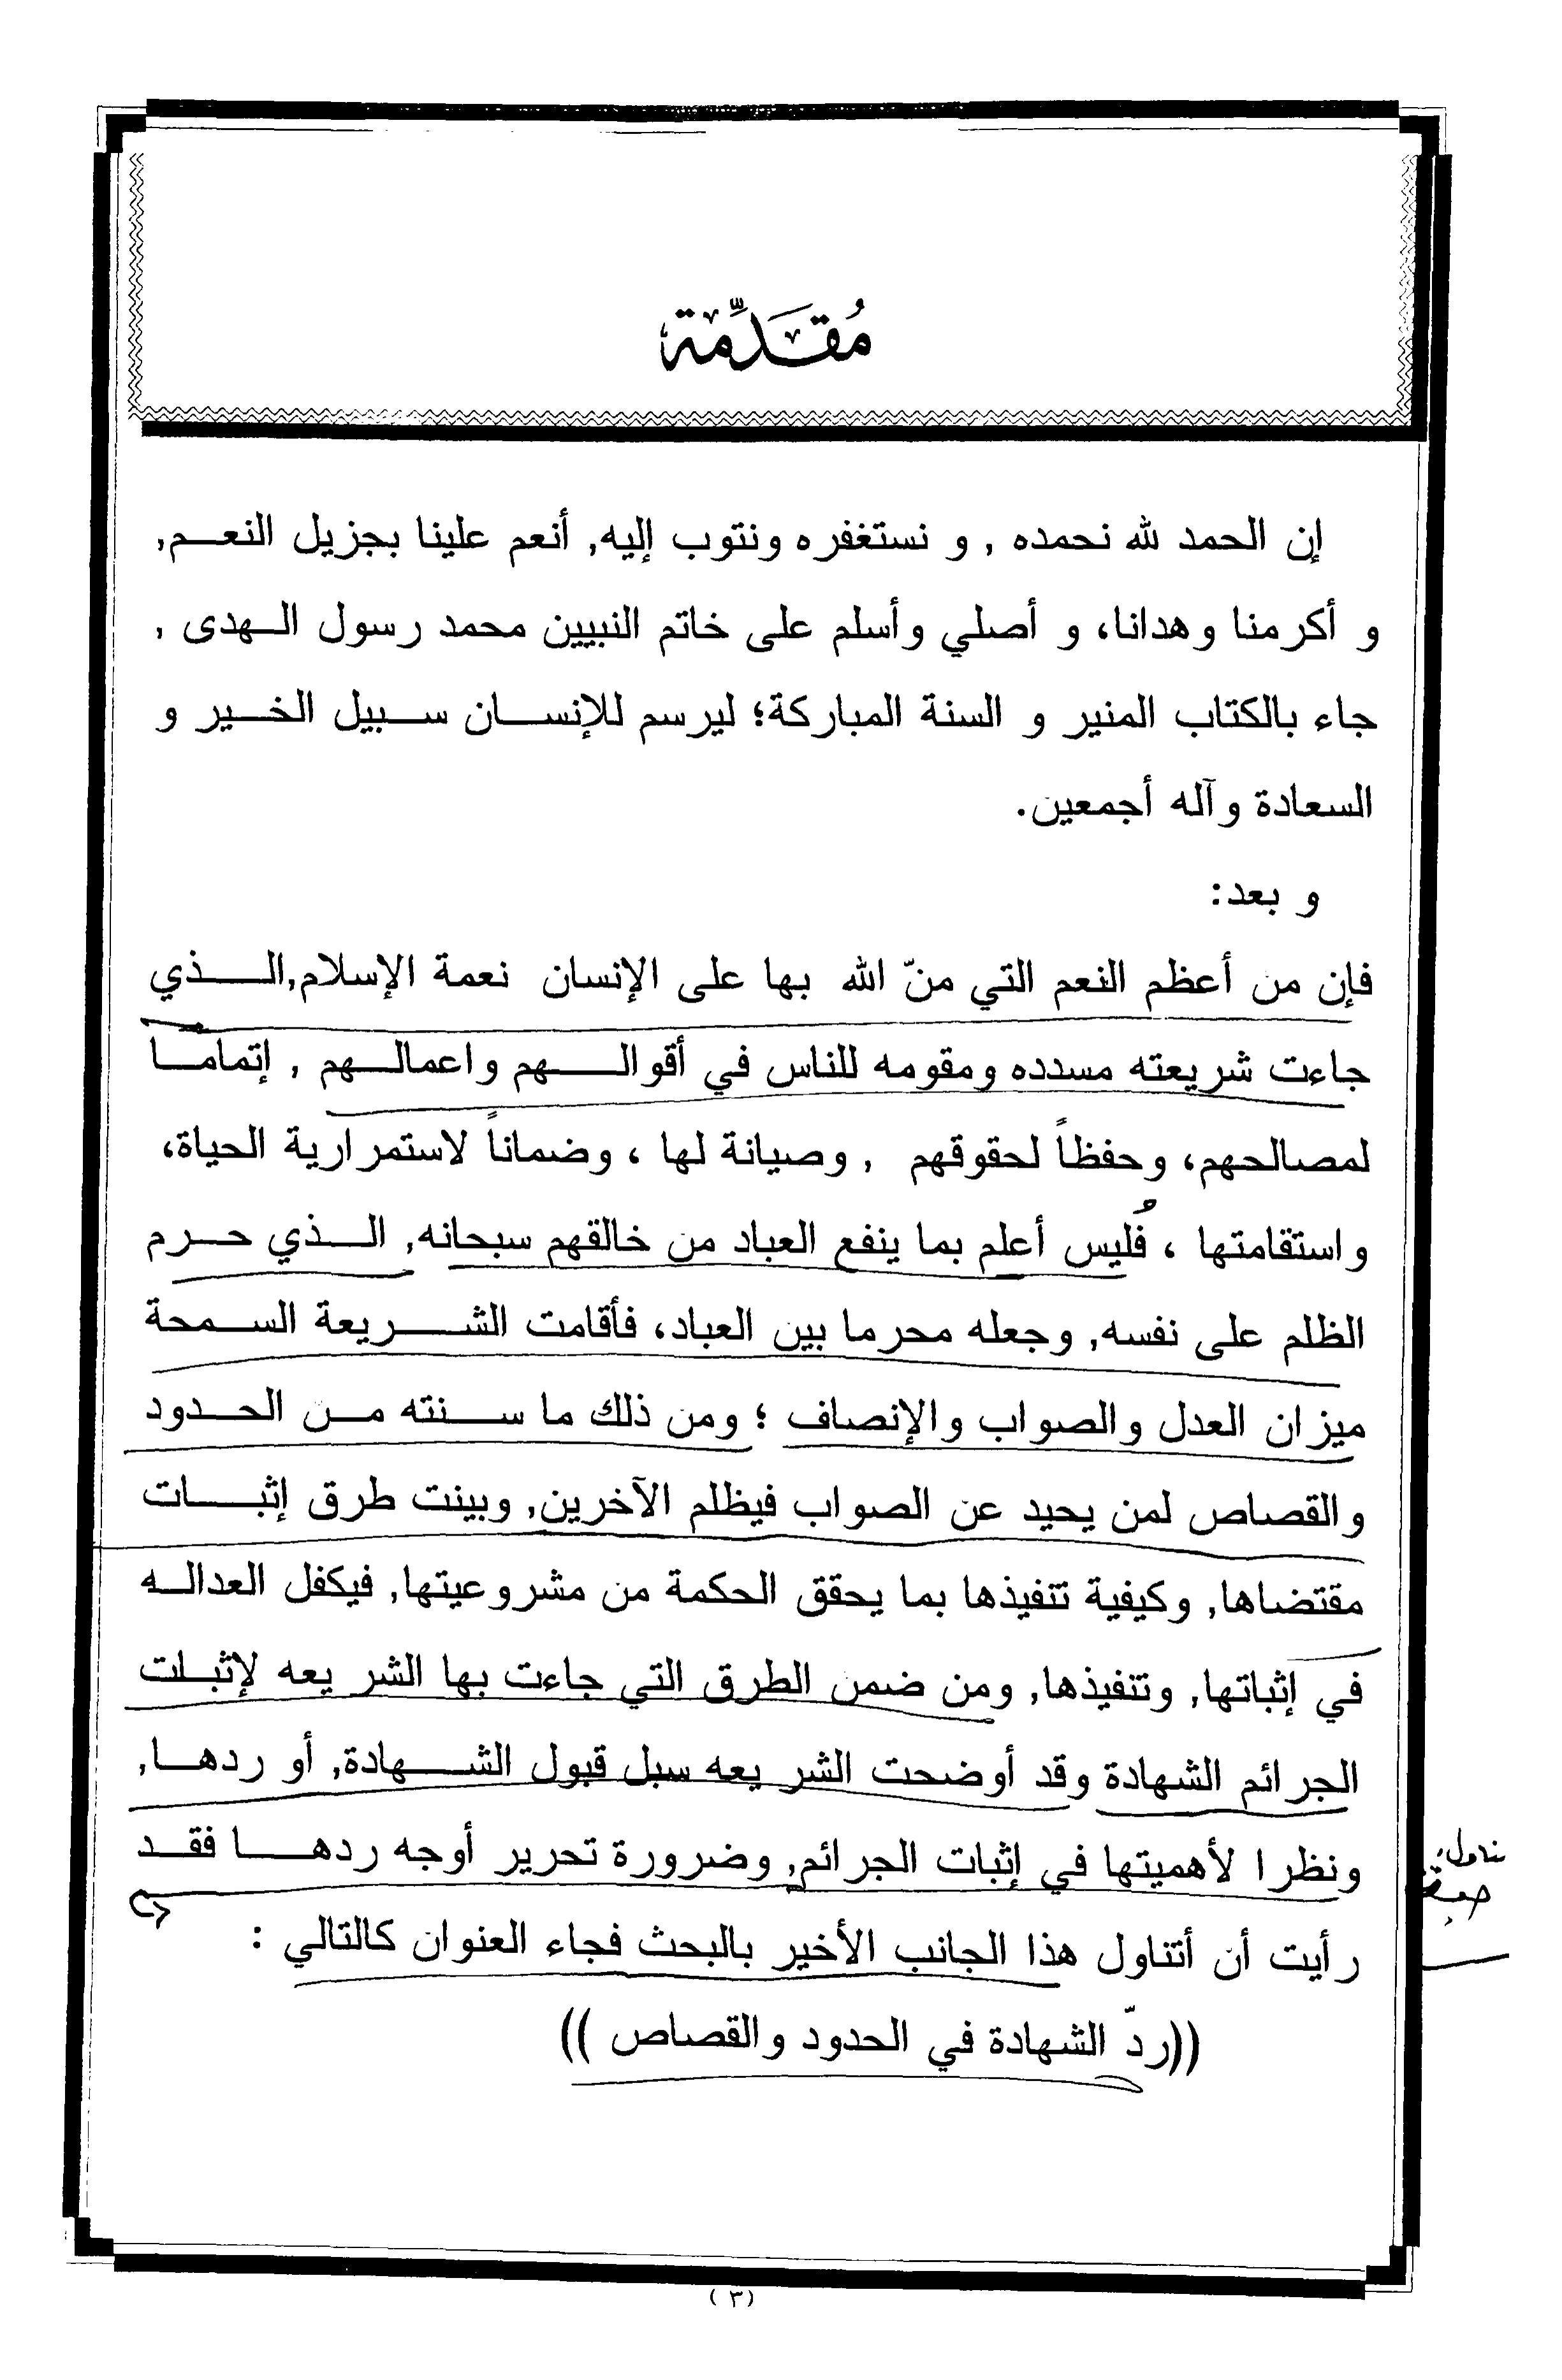 مُقَدِّمة
إن الحمد لله نحمده , و نستغفره ونتوب إليه, أنعم علينا بجزيل النعم,
و أكرمنا وهدانا، و أصلي وأسلم على خاتم النبيين محمد رسول الهدى ,
جاء بالكتاب المنير و السنة المباركة؛ ليرسم للإنسان سبيل الخير و
السعادة وآله أجمعين.
و بعد:
فإن من أعظم النعم التي منّ الله بها على الإنسان نعمة الإسلام,الذي
جاءت شريعته مسدده ومقومه للناس في أقوالهم واعمالهم , إتماماً
لمصالحهم، وحفظاً لحقوقهم , وصيانة لها ، وضماناً لاستمرارية الحياة،
واستقامتها ، فليس أعلم بما ينفع العباد من خالقهم سبحانه, الذي حرم
الظلم على نفسه, وجعله محرما بين العباد، فأقامت الشريعة السمحة
ميزان العدل والصواب والإنصاف ؛ ومن ذلك ما سنته من الحدود
والقصاص لمن يحيد عن الصواب فيظلم الآخرين, وبينت طرق إثبات
مقتضاها, وكيفية تنفيذها بما يحقق الحكمة من مشروعيتها, فيكفل العداله
في إثباتها, وتنفيذها, ومن ضمن الطرق التي جاءت بها الشريعه لإثبات
الجرائم الشهادة وقد أوضحت الشريعه سبل قبول الشهادة, أو ردها,
ونظرا لأهميتها في إثبات الجرائم, وضرورة تحرير أوجه ردها فقد
رأيت أن أتناول هذا الجانب الأخير بالبحث فجاء العنوان كالتالي :
((ردّ الشهادة في الحدود والقصاص ))
(٣)